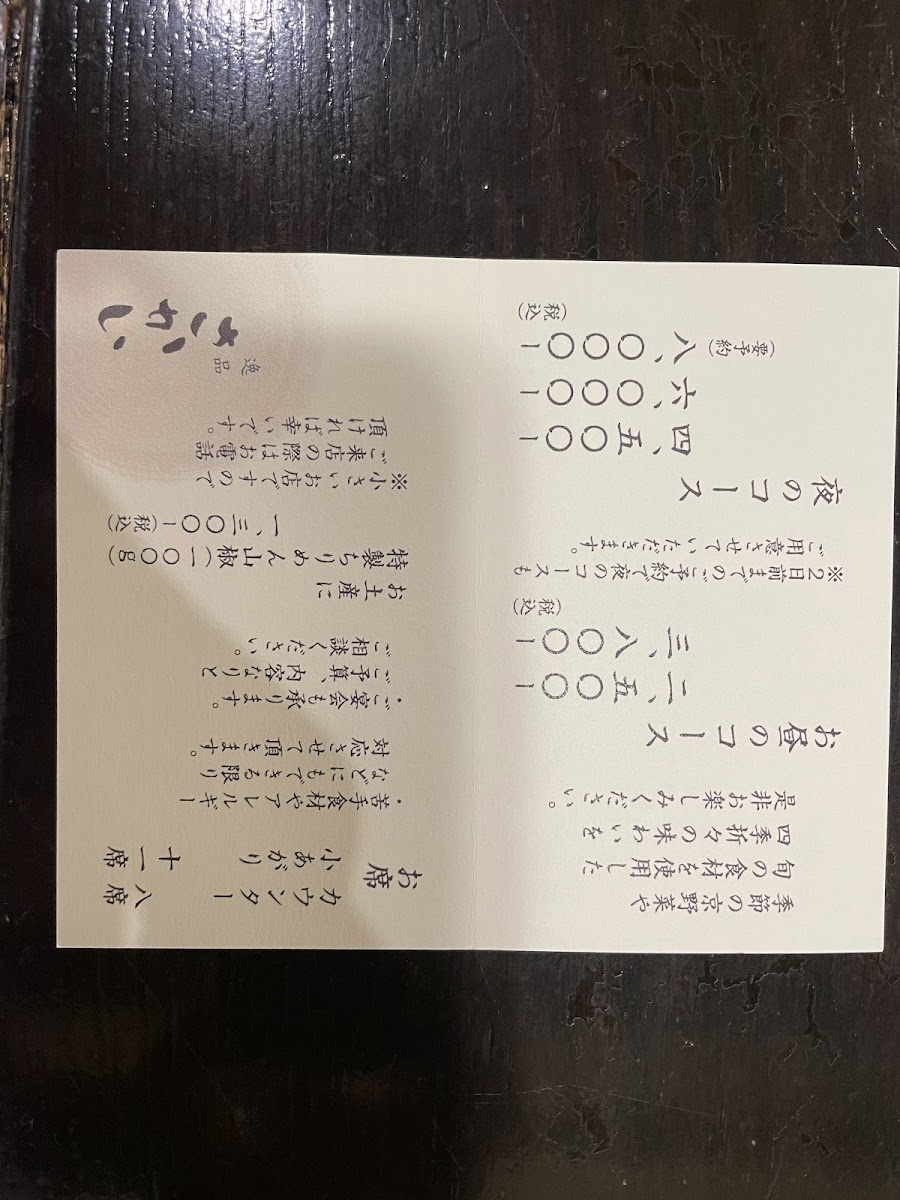 季節の京野菜や
旬の食材を使用した
四季折々の味わいを
是非お楽しみください。
お昼のコース
二、五〇〇ー
三、八〇〇ー
(税込)
※2日前までのご予約で夜のコースも
ご用意させていただきます。
夜のコース
四、五〇〇ー
六、〇〇〇ー
(要予約)八、〇〇〇ー
(税込)
お席
カウンター 八席
小あがり 十一席
・苦手食材やアレルギー
などにもできる限り
対応させて頂きます。
・ご宴会も承ります。
ご予算、内容なりと
ご相談ください。
お土産に
特製ちりめん山椒(一〇〇g)
一、三〇〇ー(税込)
※小さいお店ですので
ご来店の際はお電話
頂ければ幸いです。
逸品
さかい